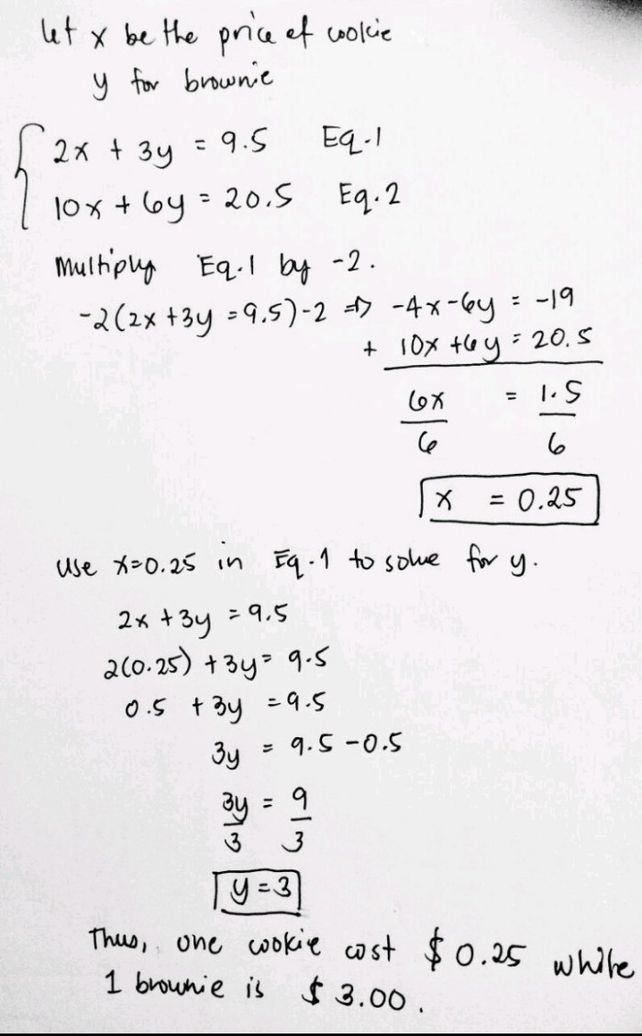 let x be the price of cookie
y for brownie
2x + 3y = 9.5 Eq.1
10x + 6y = 20.5 Eq.2
Multiply Eq.1 by -2.
-2(2x +3y =9.5)-2 ⇒ -4x-6y = -19
+ 10x +6y = 20.5
6x = 1.5
6 6
x = 0.25
Use x=0.25 in Eq.1 to solve for y.
2x +3y =9.5
2(0.25) +3y= 9.5
0.5 + 3y =9.5
3y = 9.5 -0.5
3y = 9
3 3
y=3
Thus, one cookie cost $0.25 while
1 brownie is $3.00.